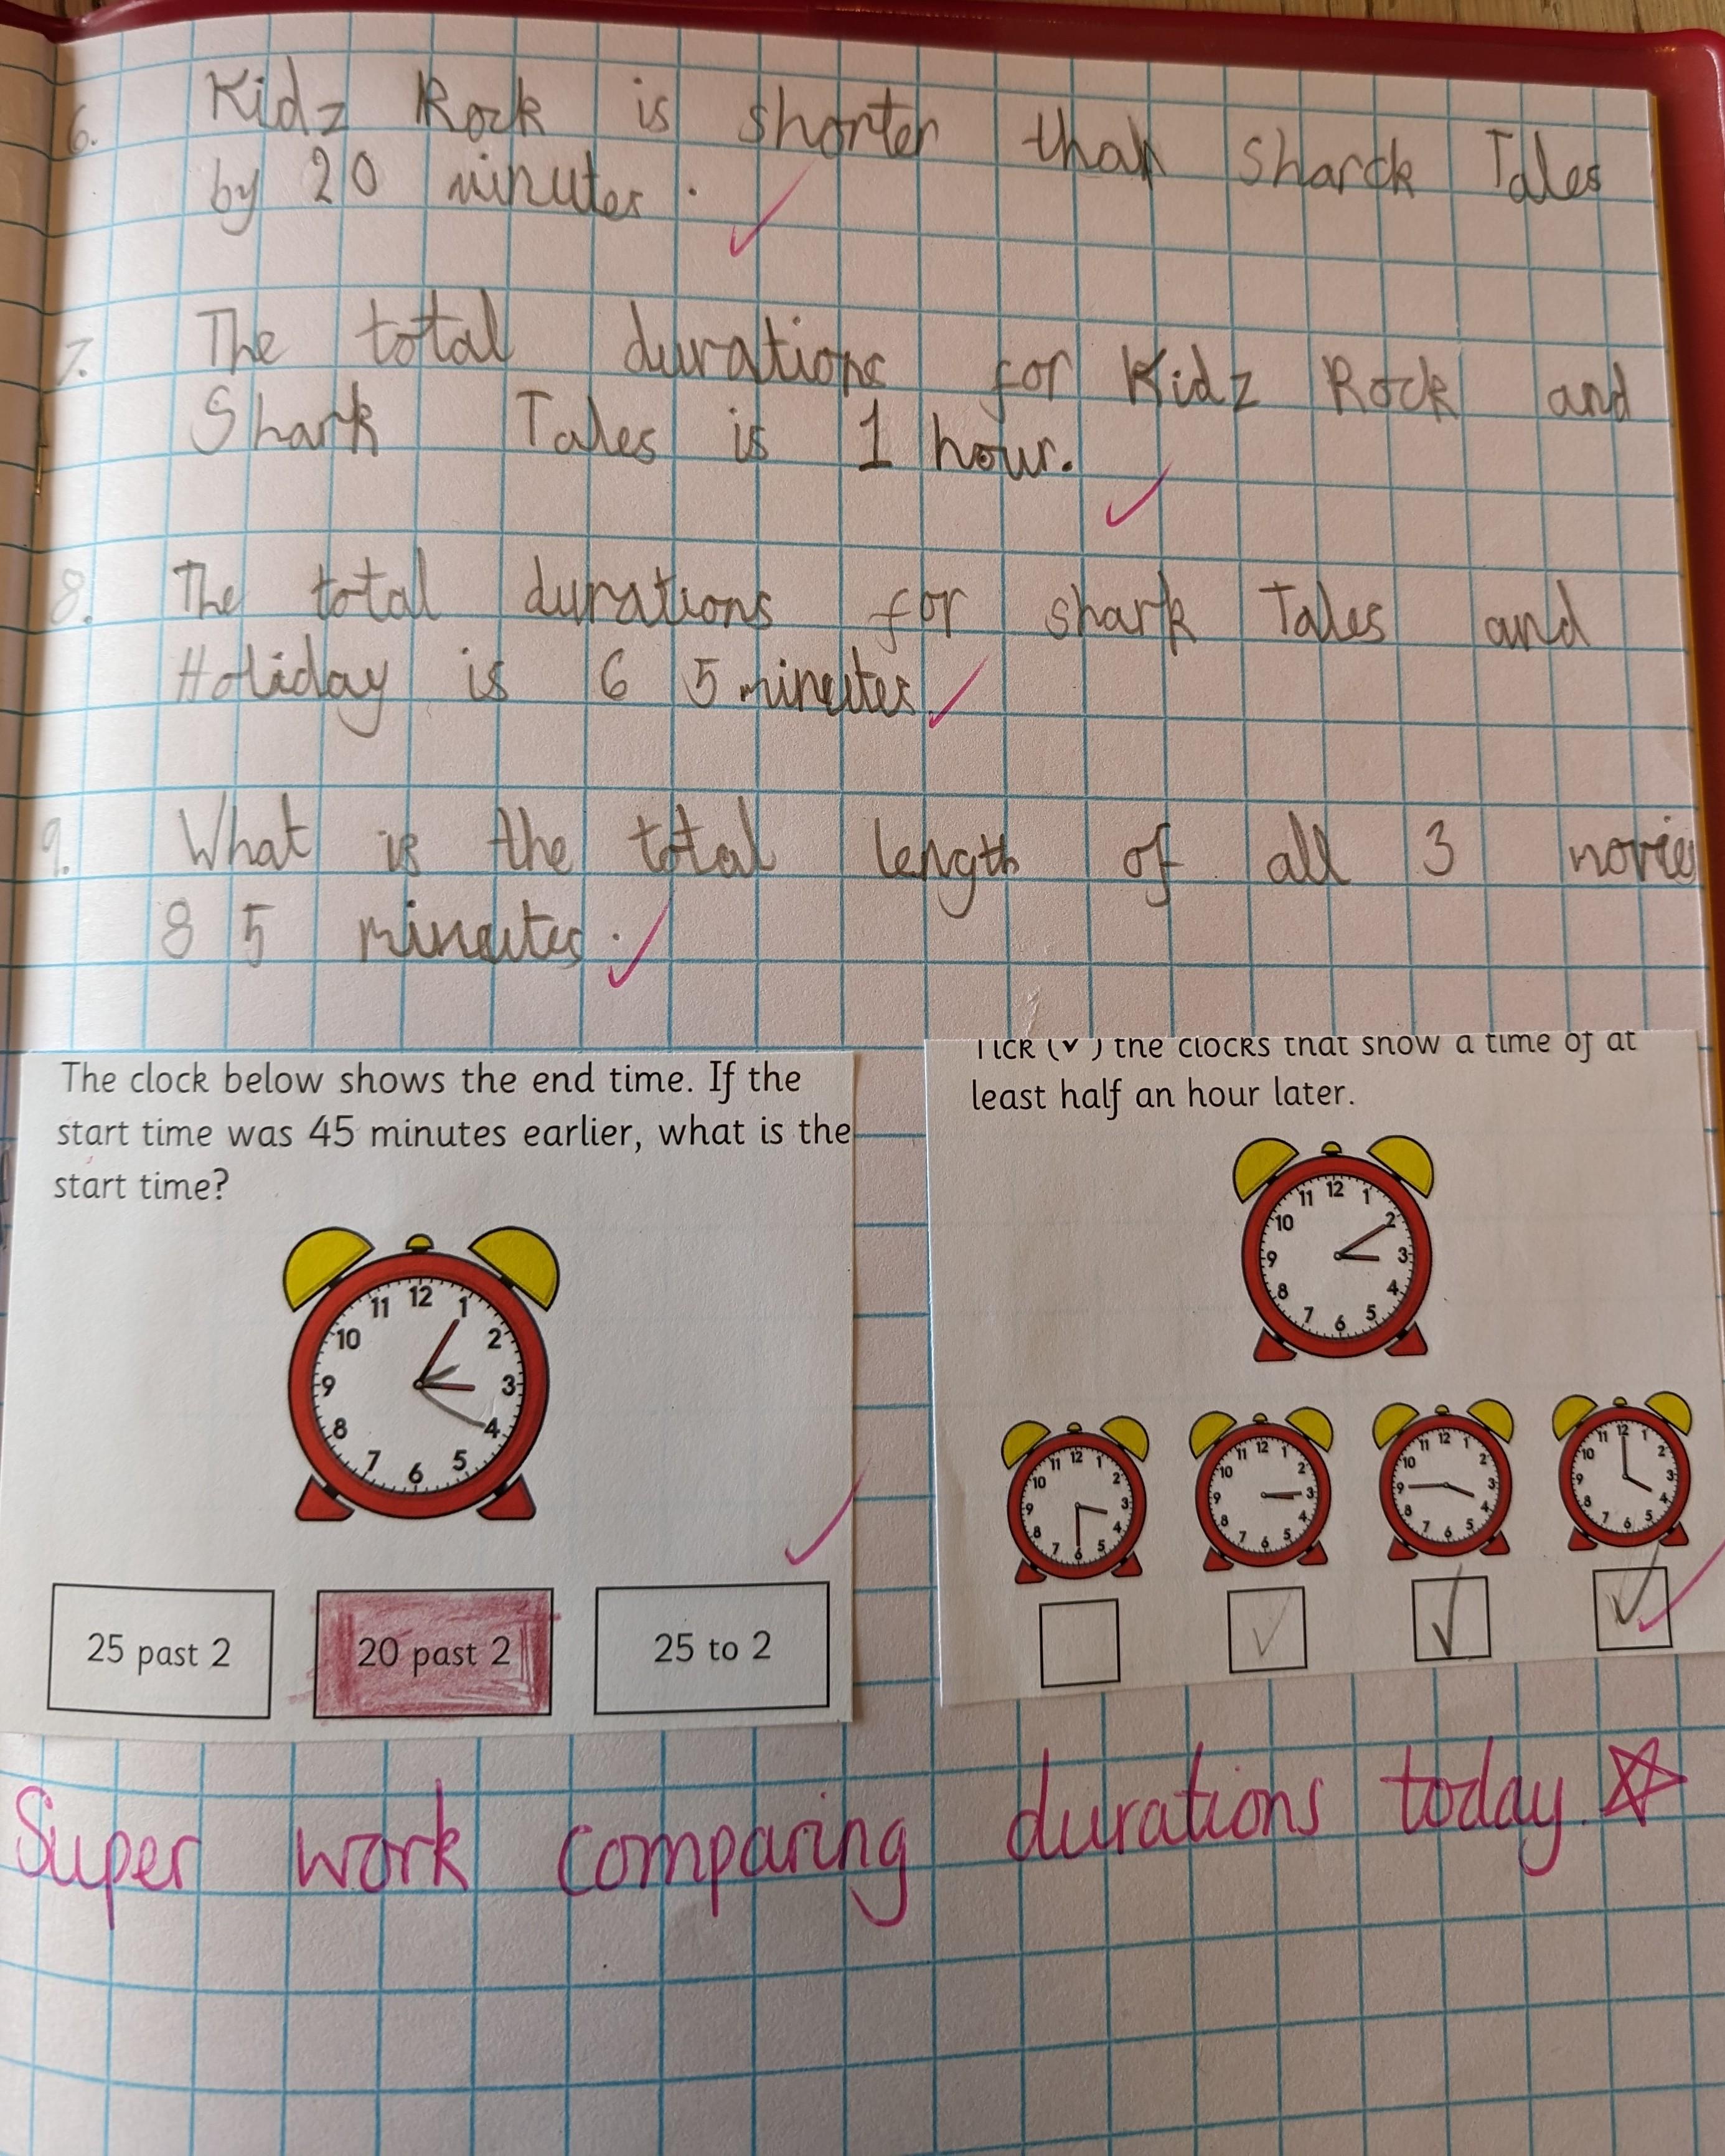 6. Kidz Rock is shorter than Sharck Tales
by 20 minutes.
7. The total durations for Kidz Rock and
Shark Tales is 1 hour.
8. The total durations for shark Tales and
Holiday is 6 5 minutes.
9. What is the total length of all 3 movies
8 5 minutes.
The clock below shows the end time. If the
start time was 45 minutes earlier, what is the
start time?
12 1 2 3 4 5 6 7 8 9 10 11
25 past 2
20 past 2
25 to 2
Tick (✓) the clocks that show a time of at
least half an hour later.
12 1 2 3 4 5 6 7 8 9 10 11
12 1 2 3 4 5 6 7 8 9 10 11
12 1 2 3 4 5 6 7 8 9 10 11
12 1 2 3 4 5 6 7 8 9 10 11
12 1 2 3 4 5 6 7 8 9 10 11
Super work comparing durations today.